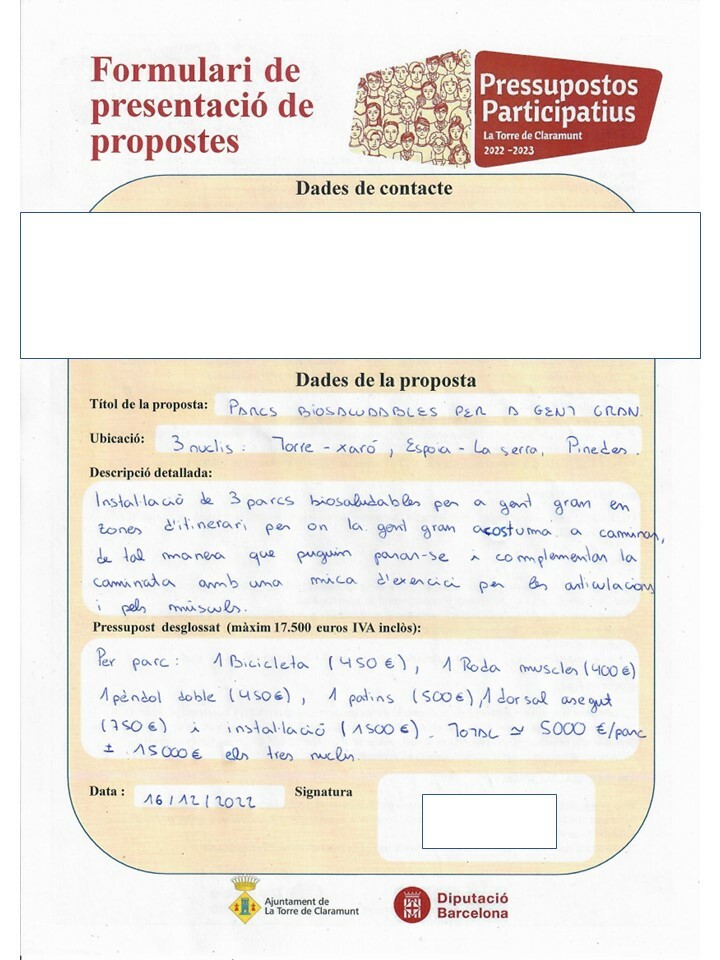 Formulari de
presentació de
propostes
Pressupostos
Participatius
La Torre de Claramunt
2022 -2023
Dades de contacte
Dades de la proposta
Títol de la proposta: PARCS BIOSALUDABLES PER A GENT GRAN.
Ubicació: 3 nuclis: Torre - xaró, Espoia - La serra, Pinedes.
Descripció detallada:
Instal·lació de 3 parcs biosaludables per a gent gran en
zones d'itinerari per on la gent gran acostuma a caminar,
de tal manera que puguin parar-se i complementar la
caminata amb una mica d'exercici per les articulacions
i pels músculs.
Pressupost desglossat (màxim 17.500 euros IVA inclòs):
Per parc: 1 Bicicleta (450€), 1 Roda muscles (400€)
1 pèndol doble (450€), 1 patins (500€), 1 dorsal assegut
(750€) i instal·lació (1500€). TOTAL ≃ 5000 €/parc
± 15000€ els tres nuclis.
Data : 16/12/2022 Signatura
Ajuntament de
La Torre de Claramunt
Diputació
Barcelona